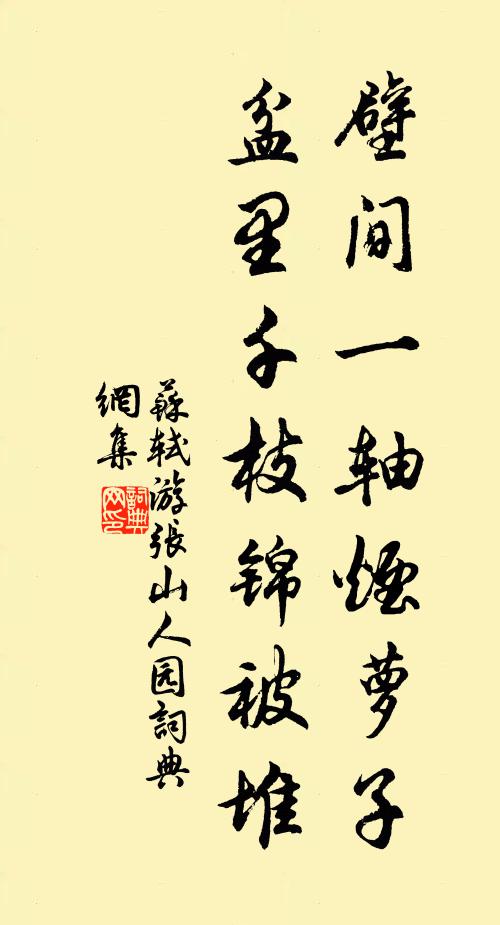 壁间一轴煙萝子
盆里千枝锦被堆
蘇轼游張山人园詞典
網集
詞典网印